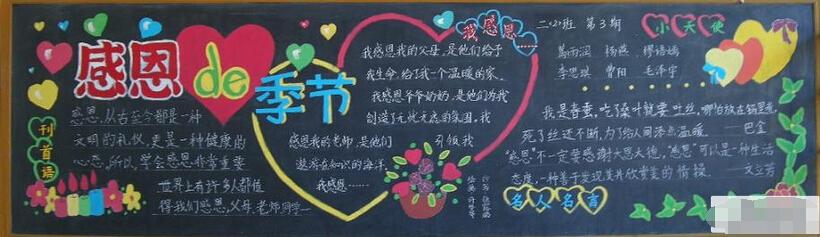 感恩de季节
刊首语
感恩,从古至今都是一种
文明的礼仪,更是一种健康的
心态,所以,学会感恩非常重要
世界上有许多人都值
得我们感恩,父母、老师、同学…
我感恩……
我感恩我的父母,是他们给予
我生命,给了我一个温暖的家。
我感恩爷爷奶奶,是他们为我
创造了无忧无虑的氛围,我
感恩我的老师,是他们引领我
遨游在知识的海洋。
我感恩……
二(2)班 第3期
小天使
杨燕
曹阳
我是春蚕,吃了桑叶就要吐丝,哪怕放在锅里煮,
死了丝还不断,为了给人间添点温暖。——巴金
“感恩”不一定要感谢大恩大德,“感恩”可以是一种生活
态度,一种善于发现美并欣赏美的情操。
名人名言